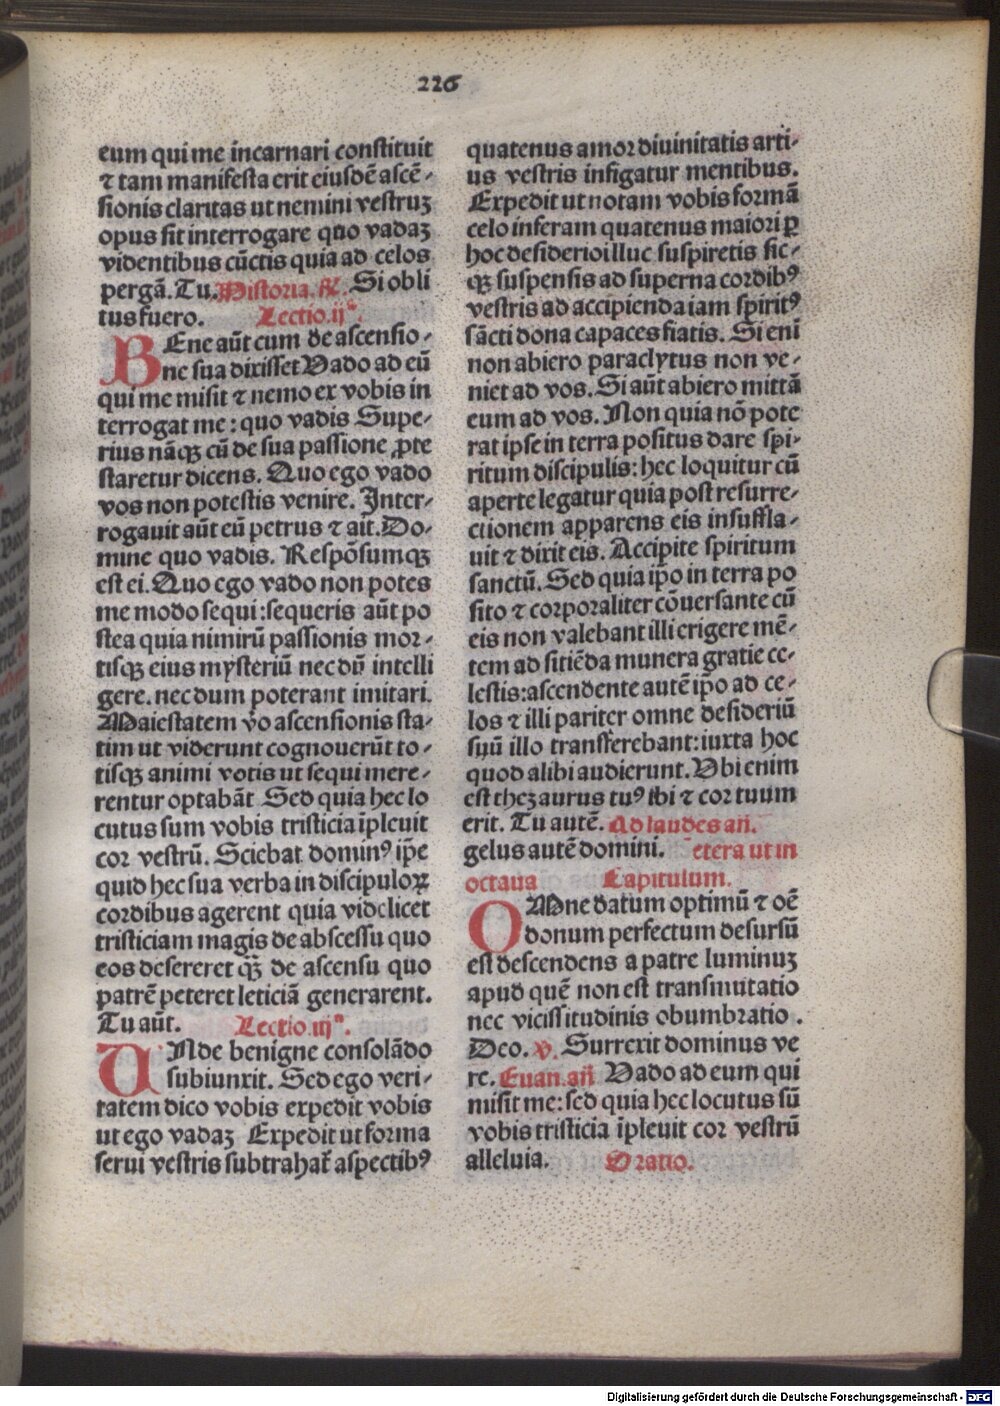 226
eum qui me incarnari constituit
⁊ tam manifesta erit eiusdē ascē-
sionis claritas ut nemini vestruꝫ
opus sit interrogare quo vadaꝫ
videntibus cūctis quia ad celos
pergā. Tu. Historia. R. Si obli
tus fuero. Lectio.ijª.
BEne aūt cum de ascensio-
ne sua dixisset Vado ad eū
qui me misit ⁊ nemo ex vobis in
terrogat me: quo vadis Supe-
rius nāqꝫ cū de sua passione ꝓte
staretur dicens. Quo ego vado
vos non potestis venire. Inter-
rogavit aūt eū petrus ⁊ ait. Do-
mine quo vadis. Respōsumqꝫ
est ei. Quo ego vado non potes
me modo sequi: sequeris aūt po
stea quia nimirū passionis mor-
tisqꝫ eius mysteriū nec dū intelli
gere. nec dum poterant imitari.
Maiestatem v̄o ascensionis sta-
tim ut viderunt cognoverūt to-
tisqꝫ animi votis ut sequi mere-
rentur optabāt Sed quia hec lo
cutus sum vobis tristicia īplevit
cor vestrū. Sciebat dominꝰ ip̄e
quid hec sua verba in discipuloꝝ
cordibus agerent quia videlicet
tristiciam magis de abscessu quo
eos desereret qꝫ̄ de ascensu quo
patrē peteret leticiā generarent.
Tu aūt. Lectio.iijª.
UNde benigne consolādo
subiunxit. Sed ego veri-
tatem dico vobis expedit vobis
ut ego vadaꝫ Expedit ut forma
servi vestris subtrahat̄ aspectibꝰ
quatenus amor divinitatis arti-
us vestris infigatur mentibus.
Expedit ut notam vobis formā
celo inferam quatenus maiori ꝑ
hoc desiderio illuc suspiretis sic-
qꝫ suspensis ad superna cordibꝰ
vestris ad accipienda iam spiritꝰ
sācti dona capaces fiatis. Si enī
non abiero paraclytus non ve-
niet ad vos. Si aūt abiero mittā
eum ad vos. Non quia nō pote
rat ipse in terra positus dare spi-
ritum discipulis: hec loquitur cū
aperte legatur quia post resurre-
ctionem apparens eis insuffla-
vit ⁊ dixit eis. Accipite spiritum
sanctū. Sed quia ip̄o in terra po
sito ⁊ corporaliter cōversante cū
eis non valebant illi erigere mē-
tem ad sitiēda munera gratie ce-
lestis: ascendente autē ip̄o ad ce-
los ⁊ illi pariter omne desideriū
suū illo transferebant: iuxta hoc
quod alibi audierunt. Vbi enim
est thezaurus tuꝰ ibi ⁊ cor tuum
erit. Tu autē. Ad laudes añ.
gelus autē domini. etera ut in
octava Capitulum.
OMne datum optimū ⁊ oē
donum perfectum desursū
est descendens a patre luminuꝫ
apud quē non est transmutatio
nec vicissitudinis obumbratio.
Deo. v. Surrexit dominus ve
re. Evan. añ Vado ad eum qui
misit me: sed quia hec locutus sū
vobis tristicia īplevit cor vestrū
alleluia. Oratio.
Digitalisierung gefördert durch die Deutsche Forschungsgemeinschaft - DFG